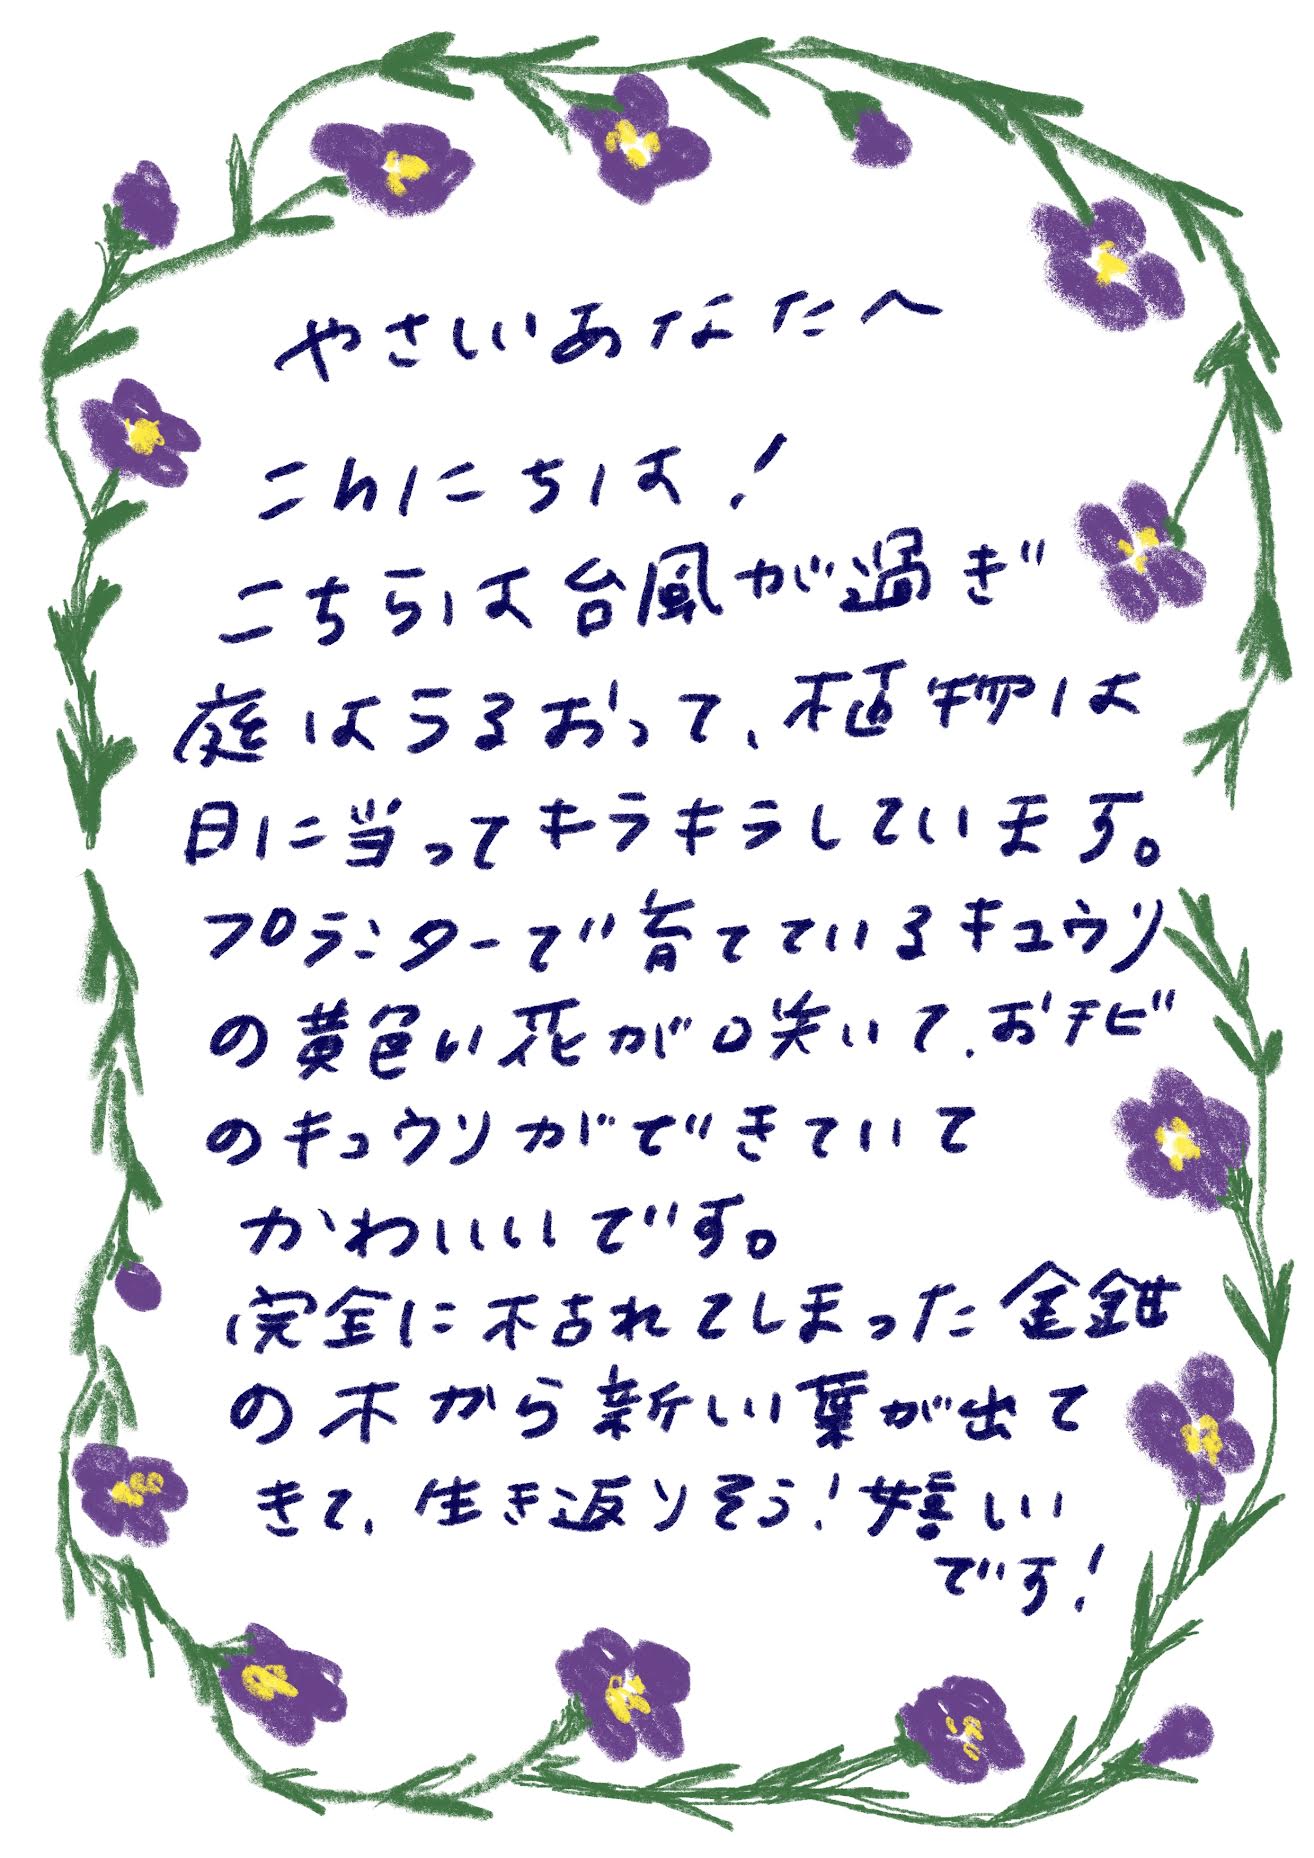 やさしいあなたへ
こんにちは!
こちらは台風が過ぎ
庭はうるおって、植物は
日に当ってキラキラしています。
プランターで育てているキュウリ
の黄色い花が咲いて、おチビ
のキュウリができていて
かわいいです。
完全に枯れてしまった金鉗
の木から新しい葉が出て
きて、生き返りそう!嬉しい
です!